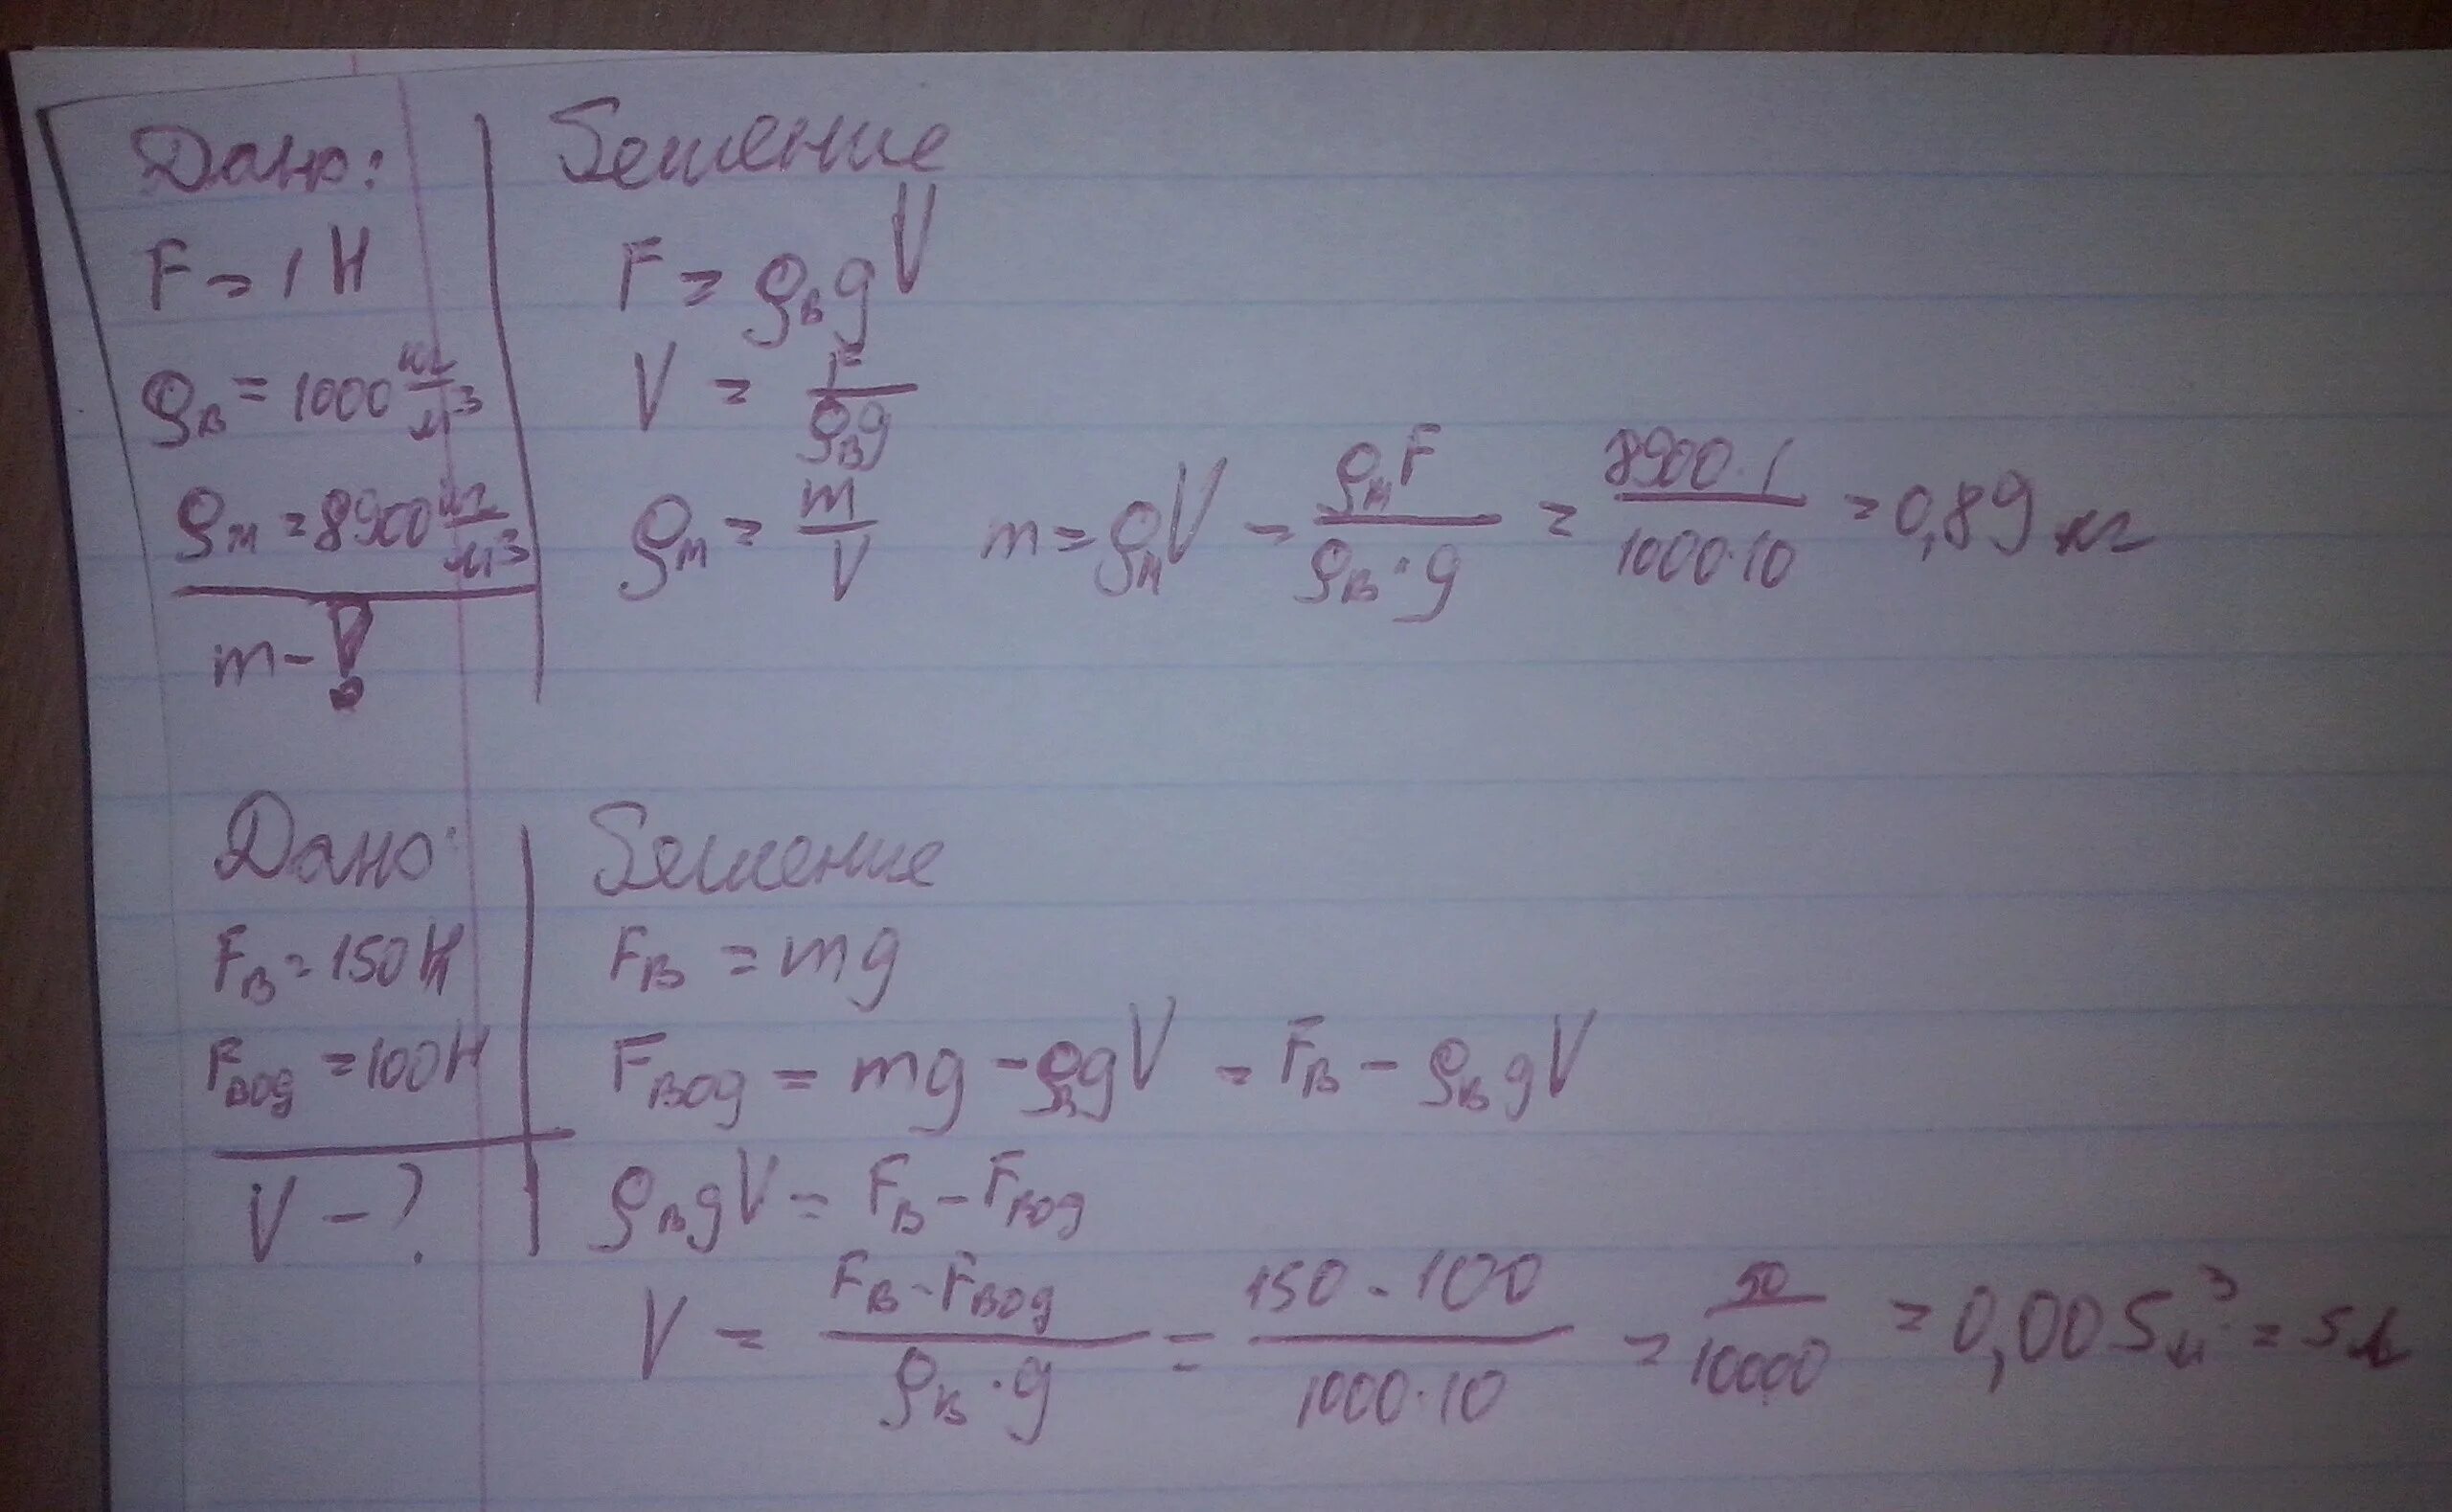 Дано:
F = 1 Н
ρв = 1000 кг/м³
ρм = 8900 кг/м³
m - ?
Решение
F = ρв g V
V = F/ρв g
ρм = m/V m = ρм V = ρм F/ρв · g = 8900 · 1/1000 · 10 = 0,89 кг
Дано:
Fв = 150 Н
Fвод = 100 Н
V - ?
Решение
Fв = mg
Fвод = mg - ρв g V = Fв - ρв g V
ρв g V = Fв - Fвод
V = Fв - Fвод/ρв · g = 150 - 100/1000 · 10 = 50/10000 = 0,005 м³ = 5 л